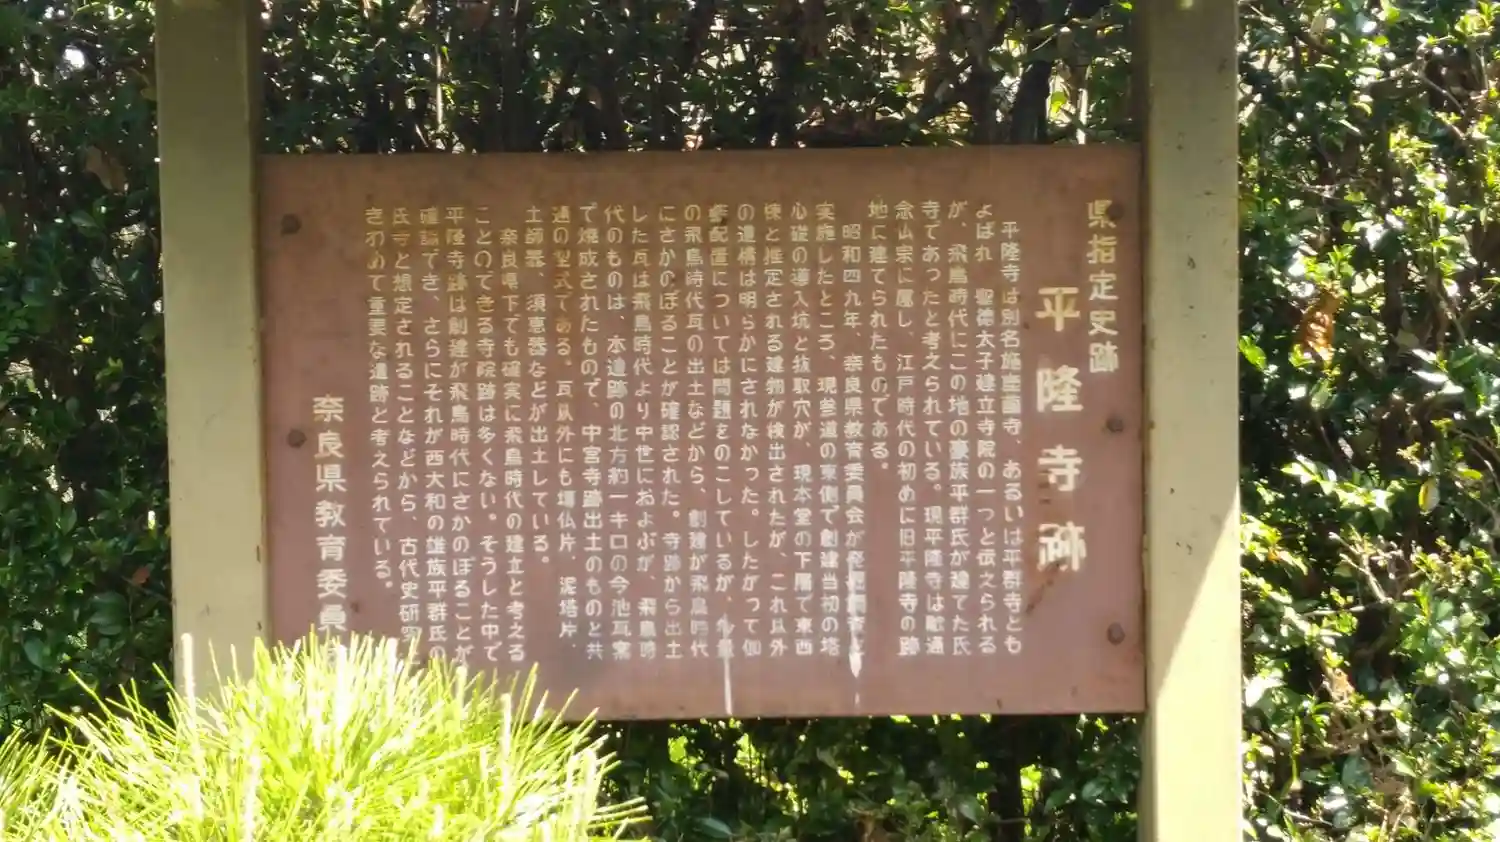 県指定史跡
平隆寺跡
平隆寺は別名施鹿園寺、あるいは平群寺とも
よばれ、聖徳太子建立寺院の一つと伝えられる
が、飛鳥時代にこの地の豪族平群氏が建てた氏
寺であったと考えられている。現平隆寺は融通
念仏宗に属し、江戸時代の初めに旧平隆寺の跡
地に建てられたものである。
昭和四九年、奈良県教育委員会が発掘調査を
実施したところ、現参道の東側で創建当初の塔
心礎の導入坑と抜取穴が、現本堂の下層で東西
棟と推定される建物が検出されたが、これ以外
の遺構は明らかにされなかった。したがって伽
藍配置については問題をのこしているが、
の飛鳥時代瓦の出土などから、創建が飛鳥時代
にさかのぼることが確認された。寺跡から出土
した瓦は飛鳥時代より中世におよぶが、飛鳥時
代のものは、本遺跡の北方約一キロの今池瓦窯
で焼成されたもので、中宮寺跡出土のものと共
通の型式である。瓦以外にも塼仏片、泥塔片、
土師器、須恵器などが出土している。
奈良県下でも確実に飛鳥時代の建立と考える
ことのできる寺院跡は多くない。そうした中で
平隆寺跡は創建が飛鳥時代にさかのぼることが
確認でき、さらにそれが西大和の雄族平群氏の
氏寺と想定されることなどから、古代史研究
きわめて重要な遺跡と考えられている。
奈良県教育委員